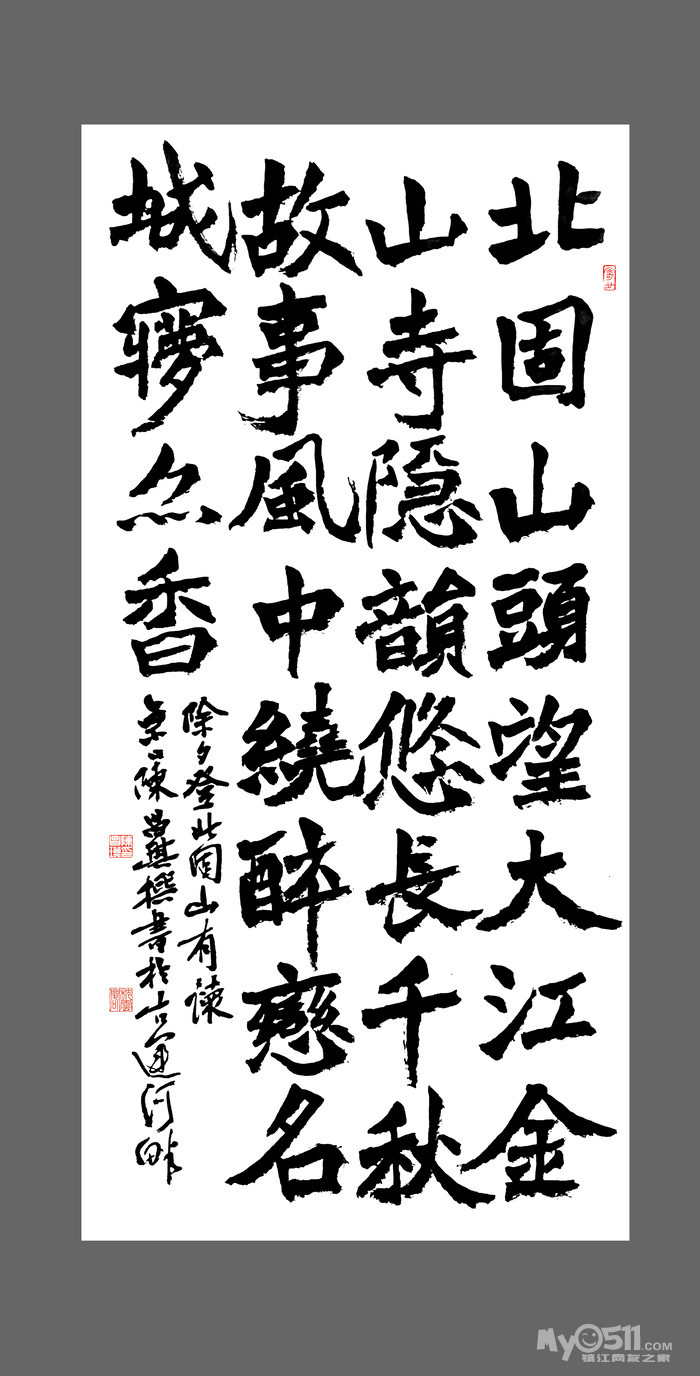 北固山頭望大江金
山寺隐韻悠長千秋
故事風中繞醉戀名
城寥尒香
除夕登北固山有
陳昌 撰書於古運河畔
My0511.COM
镇江网友之家